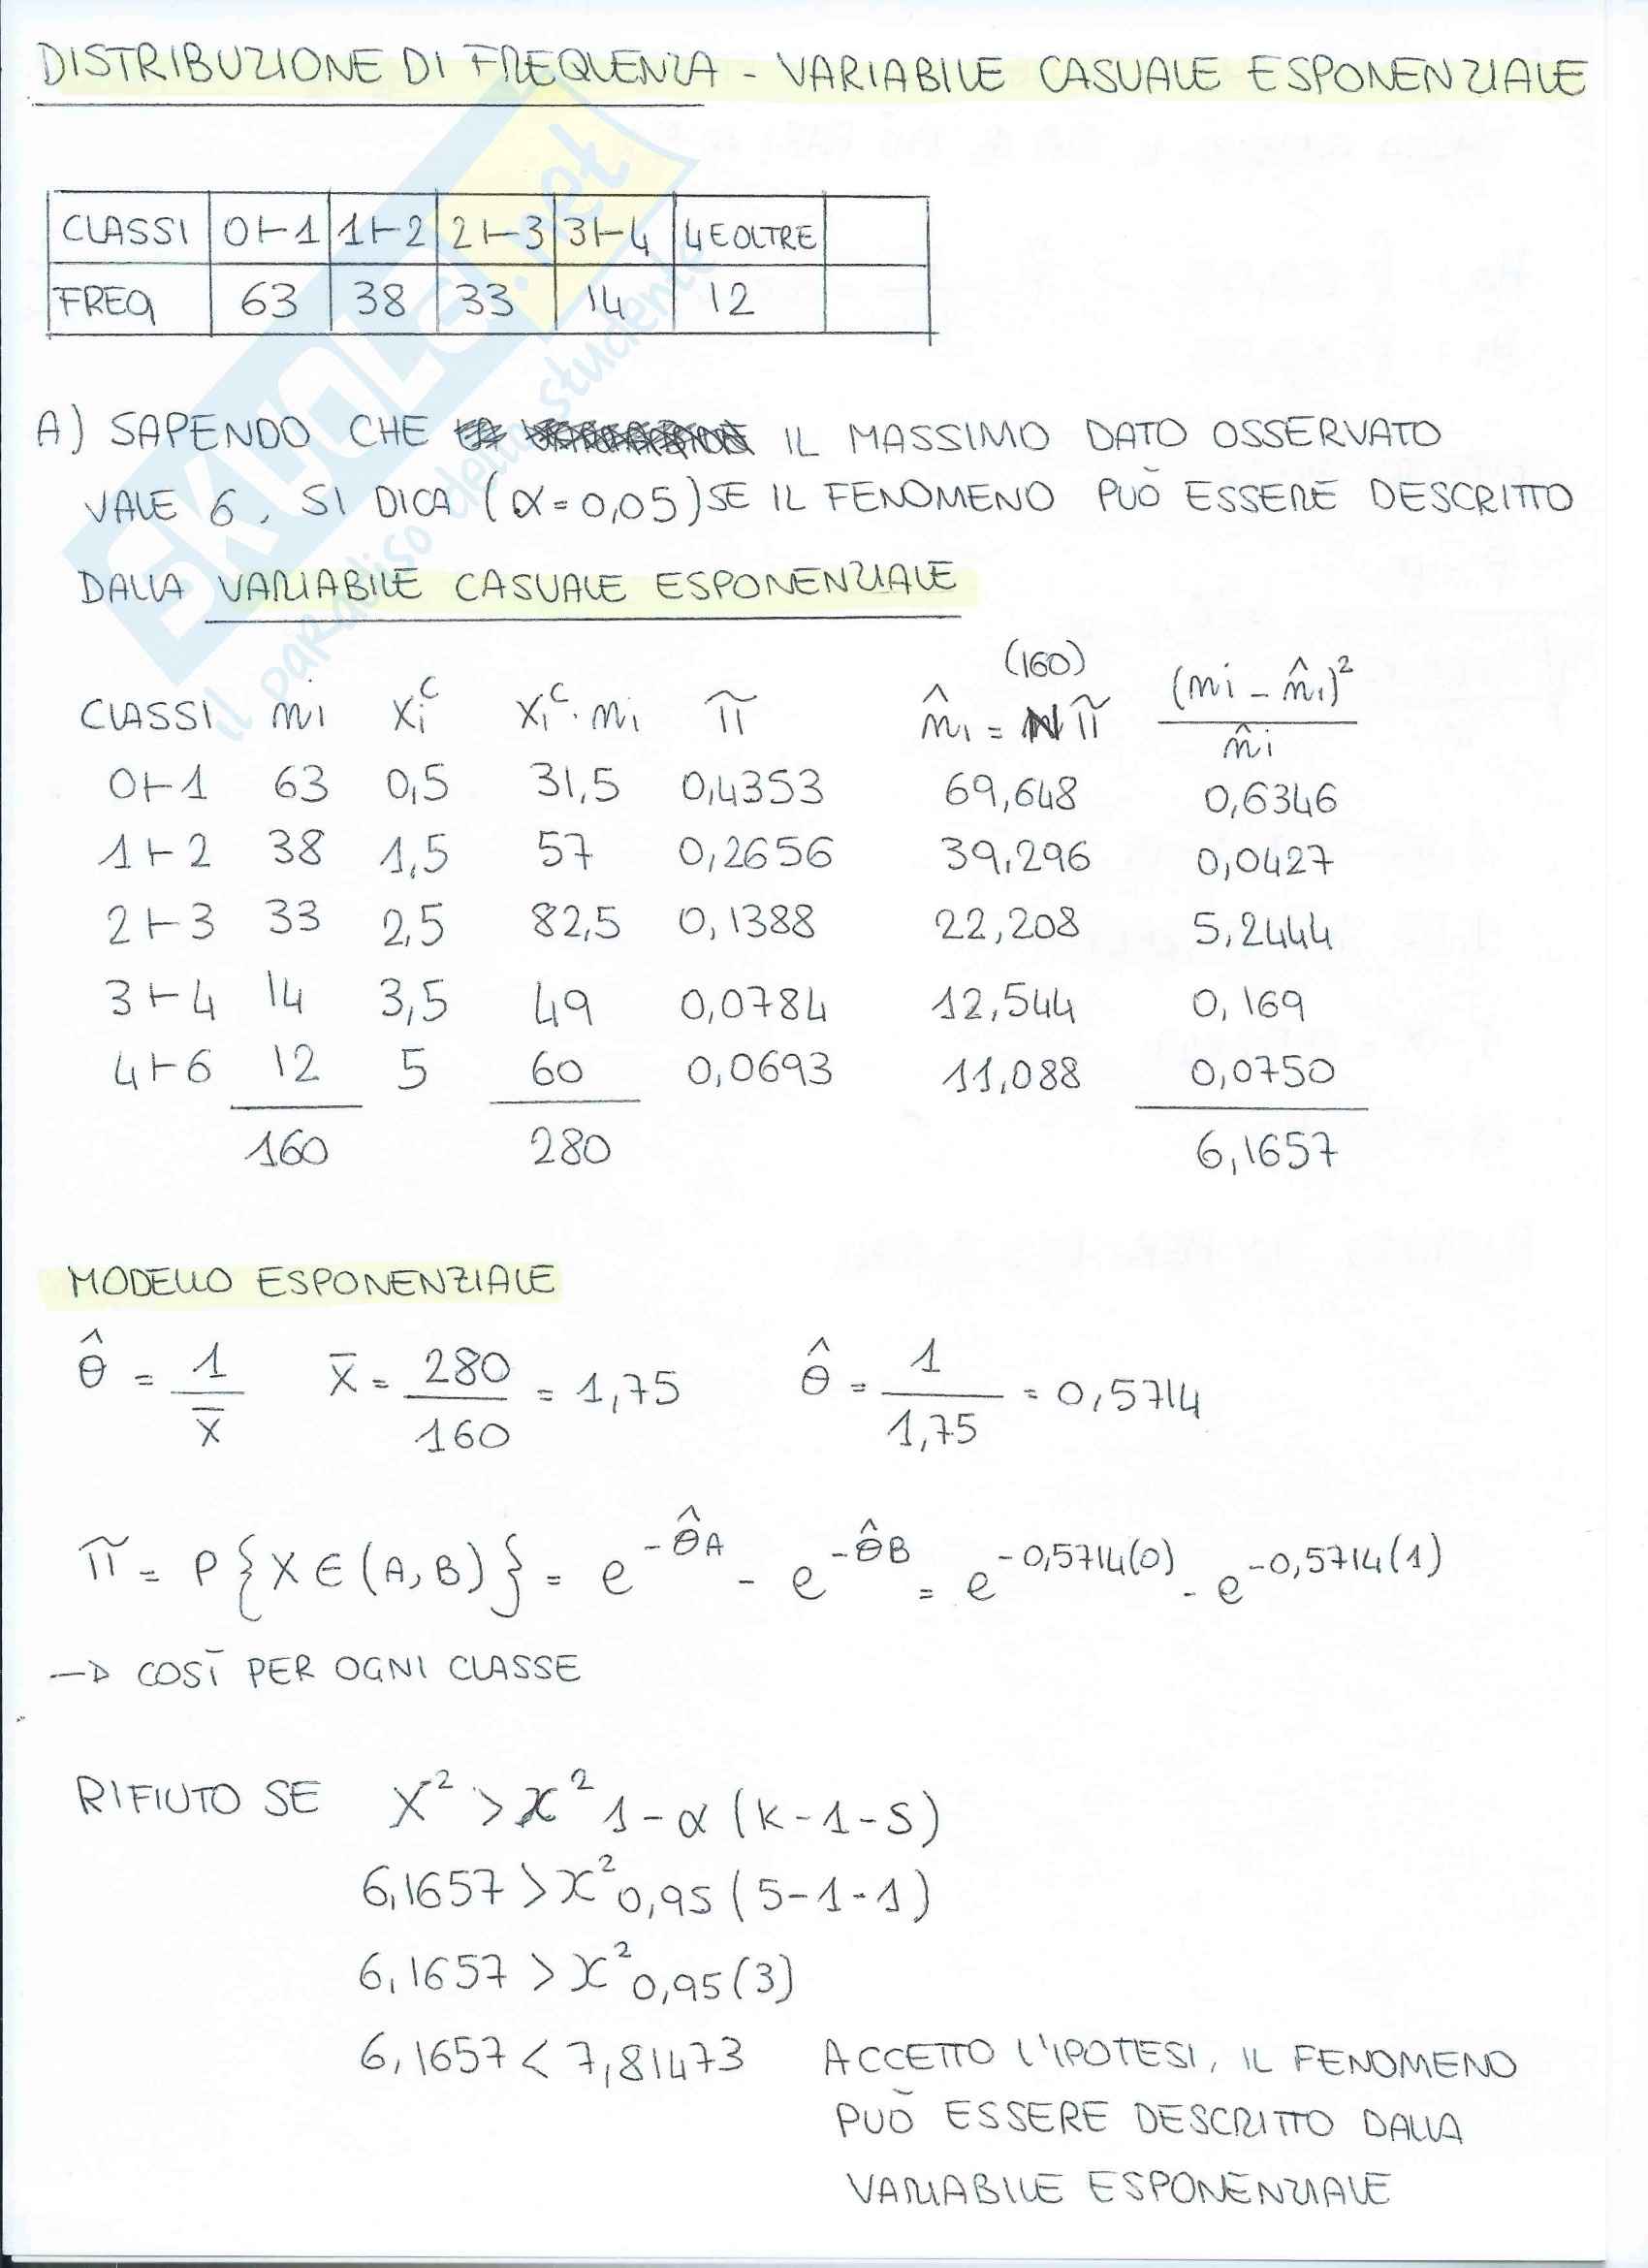 DISTRIBUZIONE DI FREQUENZA - VARIABILE CASUALE ESPONENZIALE
CLASSI | 0⊢1 | 1⊢2 | 2⊢3 | 3⊢4 | 4 E OLTRE
FREQ | 63 | 38 | 33 | 14 | 12
A) SAPENDO CHE IL MASSIMO DATO OSSERVATO
VALE 6, SI DICA (α = 0,05) SE IL FENOMENO PUÒ ESSERE DESCRITTO
DALLA VARIABILE CASUALE ESPONENZIALE
CLASSI ni xi^c xi^c · ni π̃ n̂i = N π̃ (160) (ni - n̂i)² / n̂i
0⊢1 63 0,5 31,5 0,4353 69,648 0,6346
1⊢2 38 1,5 57 0,2656 39,296 0,0427
2⊢3 33 2,5 82,5 0,1388 22,208 5,2444
3⊢4 14 3,5 49 0,0784 12,544 0,169
4⊢6 12 5 60 0,0693 11,088 0,0750
160 280 6,1657
MODELLO ESPONENZIALE
θ̂ = 1 / x̄ x̄ = 280 / 160 = 1,75 θ̂ = 1 / 1,75 = 0,5714
π̃ = P{X ∈ (A,B)} = e^-θ̂A - e^-θ̂B = e^-0,5714(0) - e^-0,5714(1)
→ COSÌ PER OGNI CLASSE
RIFIUTO SE X² > x² 1-α (K-1-S)
6,1657 > x² 0,95 (5-1-1)
6,1657 > x² 0,95 (3)
6,1657 < 7,81473 ACCETTO L'IPOTESI, IL FENOMENO
PUÒ ESSERE DESCRITTO DALLA
VARIABILE ESPONENZIALE
SKUOLA.net
il paradiso dello studente